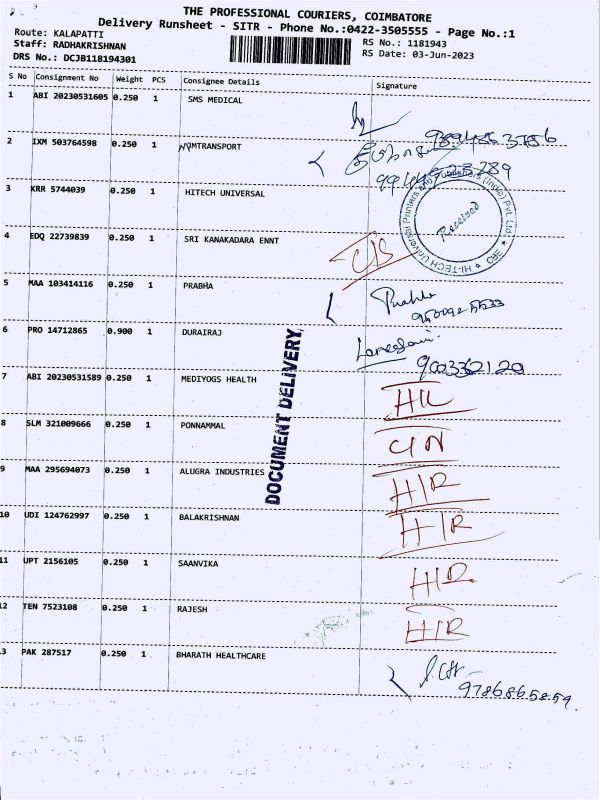 THE PROFESSIONAL COURIERS, COIMBATORE
Delivery Runsheet - SITR - Phone No.:0422-3505555 - Page No.:1
Route: KALAPATTI
Staff: RADHAKRISHNAN
DRS No.: DCJB118194301
RS No.: 1181943
RS Date: 03-Jun-2023
S No Consignment No Weight PCS Consignee Details Signature
1 ABI 20230531605 0.250 1 SMS MEDICAL
2 IXM 503764598 0.250 1 MTRANSPORT
3 KRR 5744039 0.250 1 HITECH UNIVERSAL
Received
4 EDQ 22739839 0.250 1 SRI KANAKADARA ENNT
5 MAA 103414116 0.250 1 PRABHA
Prabha
6 PRO 14712865 0.900 1 DURAIRAJ
7 ABI 20230531589 0.250 1 MEDIYOGS HEALTH
8 SLM 321009666 0.250 1 PONNAMMAL
9 MAA 295694073 0.250 1 ALUGRA INDUSTRIES H/R
10 UDI 124762997 0.250 1 BALAKRISHNAN H/R
11 UPT 2156105 0.250 1 SAANVIKA H/R
12 TEN 7523108 0.250 1 RAJESH H/R
13 PAK 287517 0.250 1 BHARATH HEALTHCARE
9786865859
DOCUMENT DELIVERY